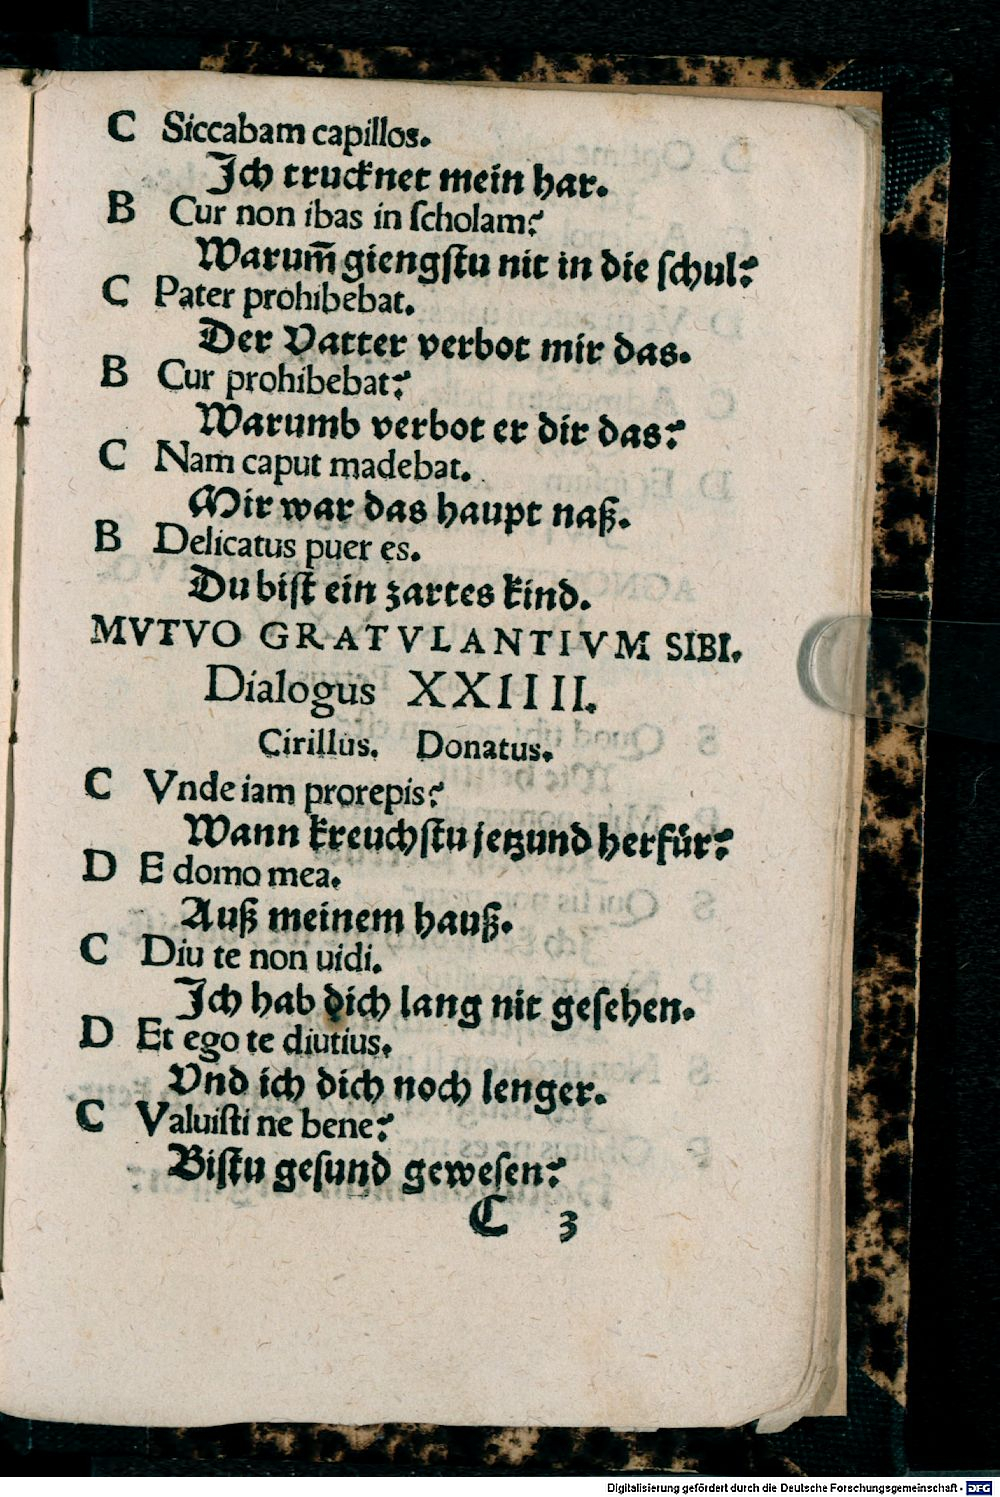 C Siccabam capillos.
Ich trucknet mein har.
B Cur non ibas in ſcholam?
Warum̃ giengſtu nit in die ſchul?
C Pater prohibebat.
Der Vatter verbot mir das.
B Cur prohibebat?
Warumb verbot er dir das?
C Nam caput madebat.
Mir war das haupt naß.
B Delicatus puer es.
Du biſt ein zartes kind.
MVTVO GRATVLANTIVM SIBI.
Dialogus XXIIII.
Cirillus. Donatus.
C Vnde iam prorepis?
Wann kreuchſtu jetzund herfür?
D E domo mea.
Auß meinem hauß.
C Diu te non uidi.
Ich hab dich lang nit geſehen.
D Et ego te diutius.
Vnd ich dich noch lenger.
C Valuiſti ne bene?
Biſtu geſund geweſen?
C 3
Digitalisierung gefördert durch die Deutsche Forschungsgemeinschaft - DFG